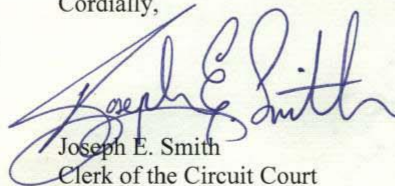 Cordially,
Joseph E. Smith
Joseph E. Smith
Clerk of the Circuit Court